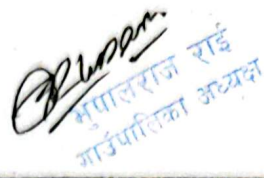 भुपालराज राई
गाउँपालिका अध्यक्ष